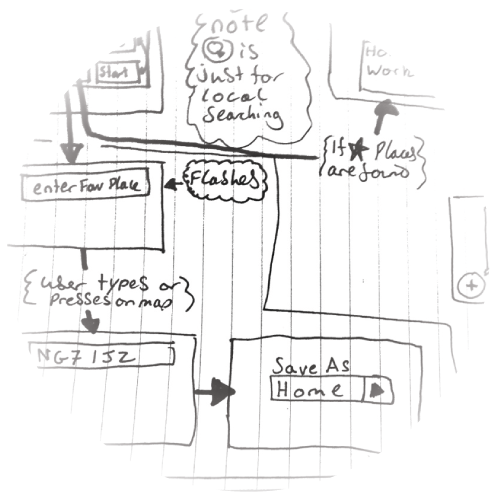 note
is
just for
local
searching
Start
Ho
Work
{If ★ Places}
are found
enter Fav Place
Flashes
{user types or}
presses on map
NG7 1SZ
Save As
Home